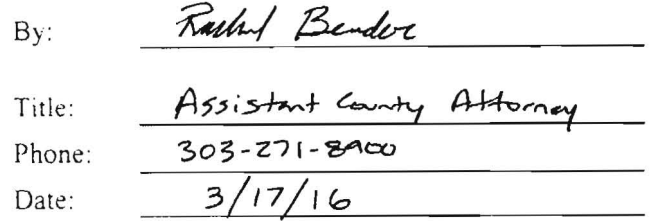 By: Rachel Bender
Title: Assistant County Attorney
Phone: 303-271-8900
Date: 3/17/16